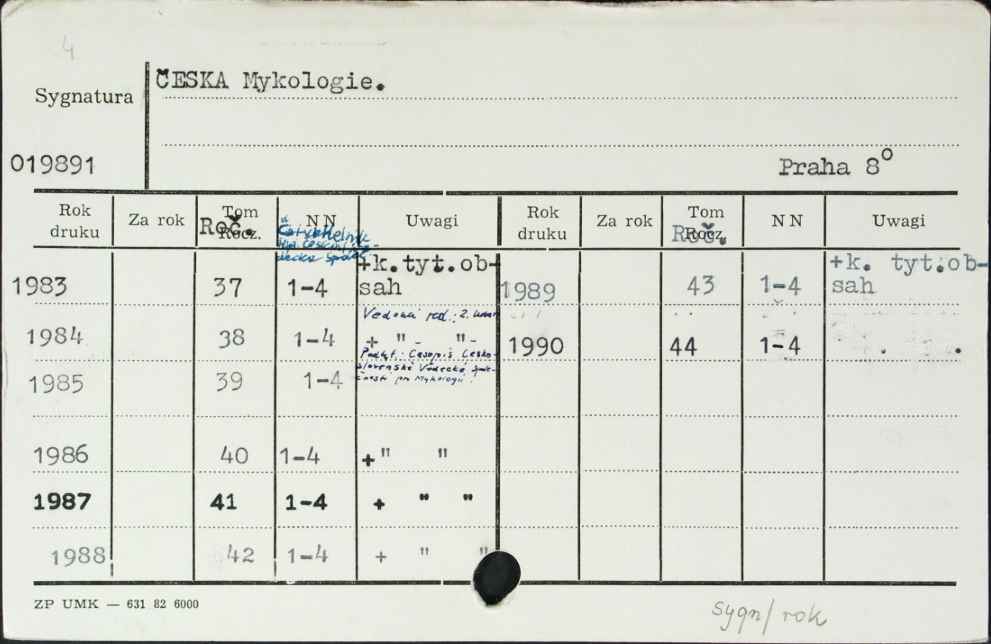 4
ČESKA Mykologie.
Sygnatura
019891
Praha 8°
Rok druku Za rok Tom Rocz. Roč. N N Uwagi Rok druku Za rok Tom Rocz. Roč. N N Uwagi
1983 37 1-4 +k.tyt.ob-
sah
1989 43 1-4 +k. tyt.ob-
sah
Vedoucí red.: Z.
1984 38 1-4 + " - "-
1990 44 1-4
Podtyt.: Časopis Česko-
slovenské Vědecké Spole-
čnosti pro Mykologii
1985 39 1-4
1986 40 1-4 + " "
1987 41 1-4 + " "
1988 42 1-4 + " "
ZP UMK — 631 82 6000
sygn/rok